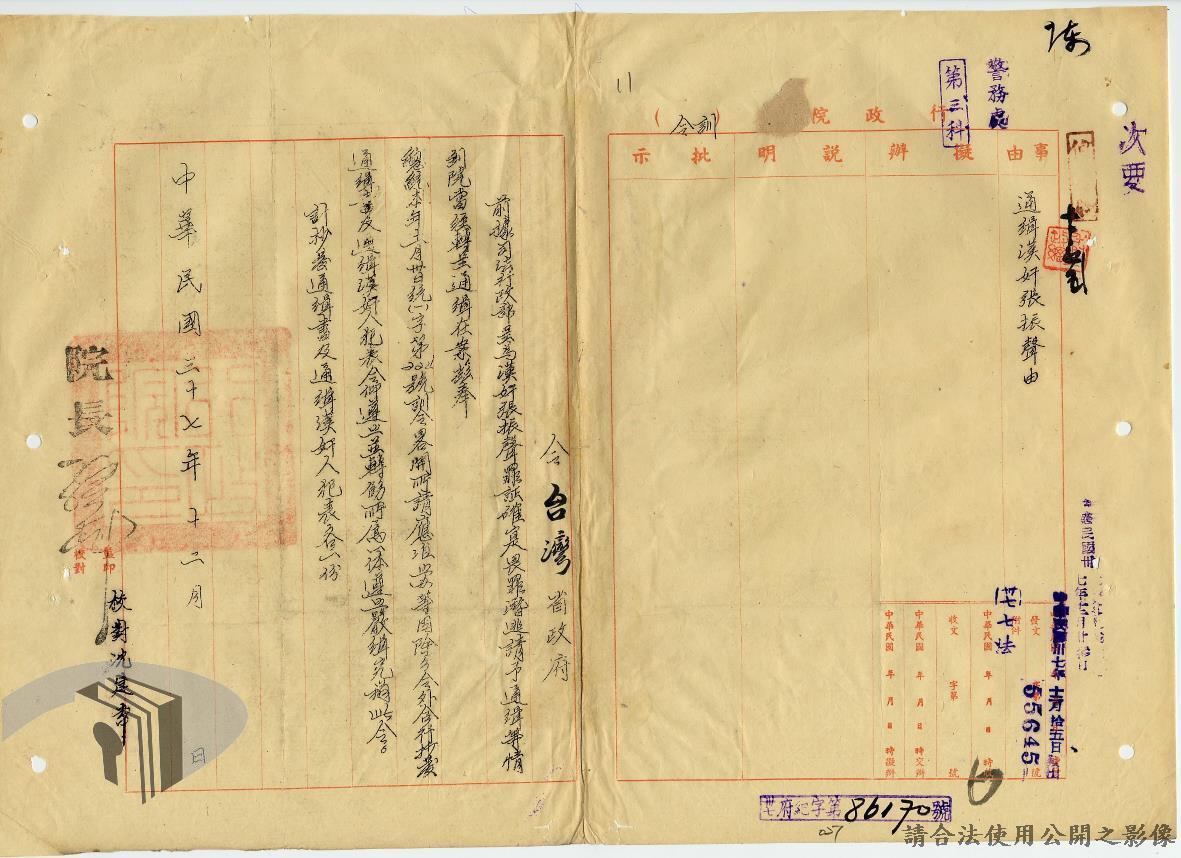 次要
警務處
第三科
11
行政院
(訓令)
事由
擬辦
說明
批示
通緝漢奸張振聲由
發文
附件
卅七法
卅七年十二月拾五日發出
55645
中華民國 年 月 日 時收
收文 字第 號
中華民國 年 月 日 時交辦
中華民國 年 月 日 時擬辦
卅七府紀字第86170號
令台灣省政府
前據司法行政部呈為漢奸張振聲罪証確定畏罪潛逃請予通緝等情
到院當經轉呈通緝在案茲奉
號訓令畧開所請應准照辦等因除分令外合行抄發
通緝書及通緝漢奸人犯表令仰遵照並轉飭所屬一体遵照嚴緝究辦此令。
計抄發通緝書及通緝漢奸人犯表各一份
中華民國三十七年十二月 日
院長
監印
校對
校對沈
請合法使用公開之影像